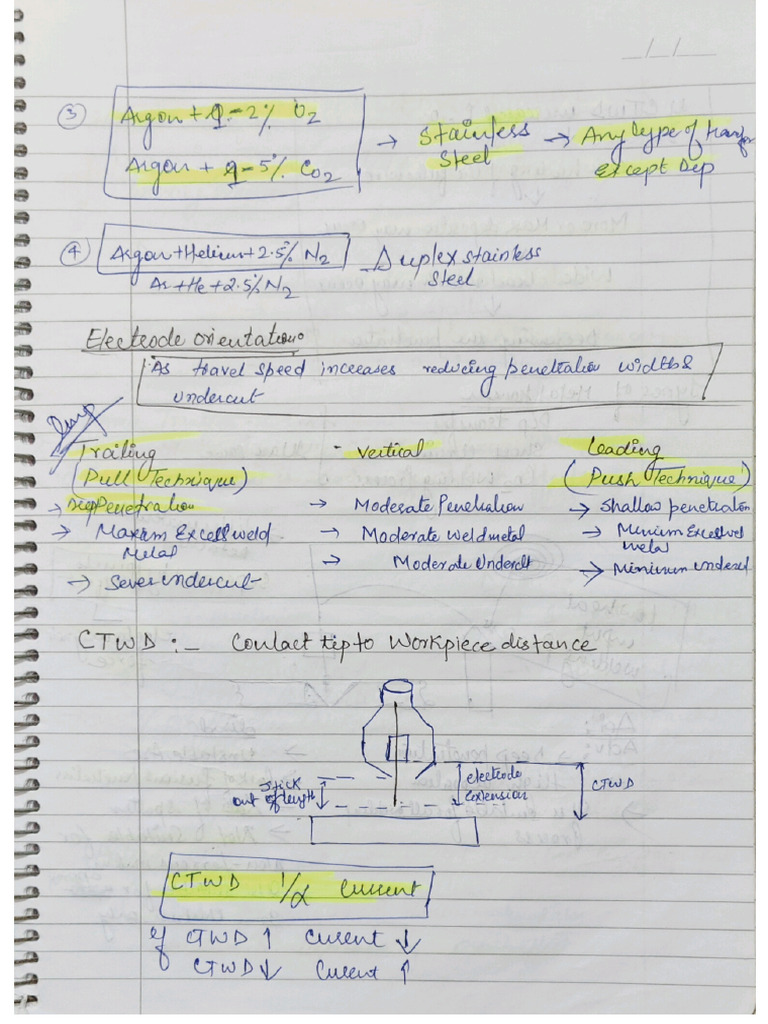 _/_/__
③ Argon + 1-2% O2
Argon + 1-5% CO2
→ Stainless Steel → Any type of transfer Except Dip
④ Argon+Helium+2.5% N2 - Duplex stainless
Ar+He+2.5% N2 Steel
Electrode orientation:
As travel speed increases reducing penetration width &
undercut
Trailing - Vertical Leading
(Pull Technique) (Push Technique)
→ Deep Penetration → Moderate Penetration → Shallow penetration
→ Maxium Excess weld Metal → Moderate Weld metal → Minium Excess weld metal
→ Sever undercut → Moderate Undercut → Minimum undercut
CTWD :- Contact tip to Workpiece distance
Stick out of length
electrode extension
CTWD
CTWD 1/α Current
If CTWD ↑ Current ↓
CTWD ↓ Current ↑